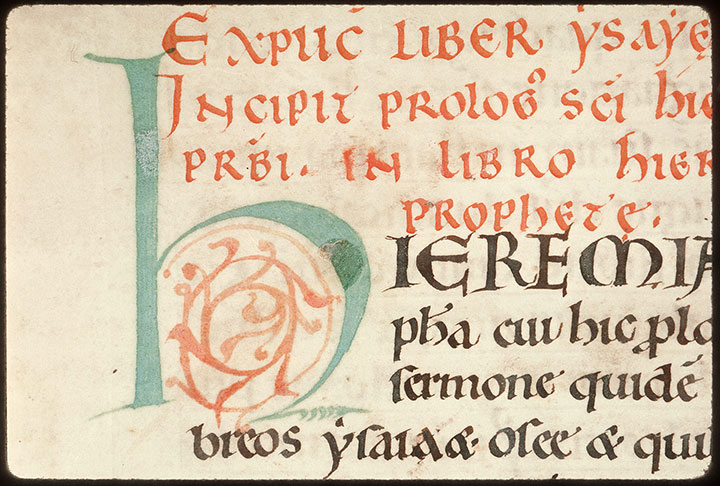 Explic̄ liber ẏsaẏę
Incipit prologꝰ sc̄i hie
pr̄bi. in libro hier
prophetę.
hieremia
ph̄a cui hic ꝓlo
sermone quidē
breos ẏsaia & osee & qui